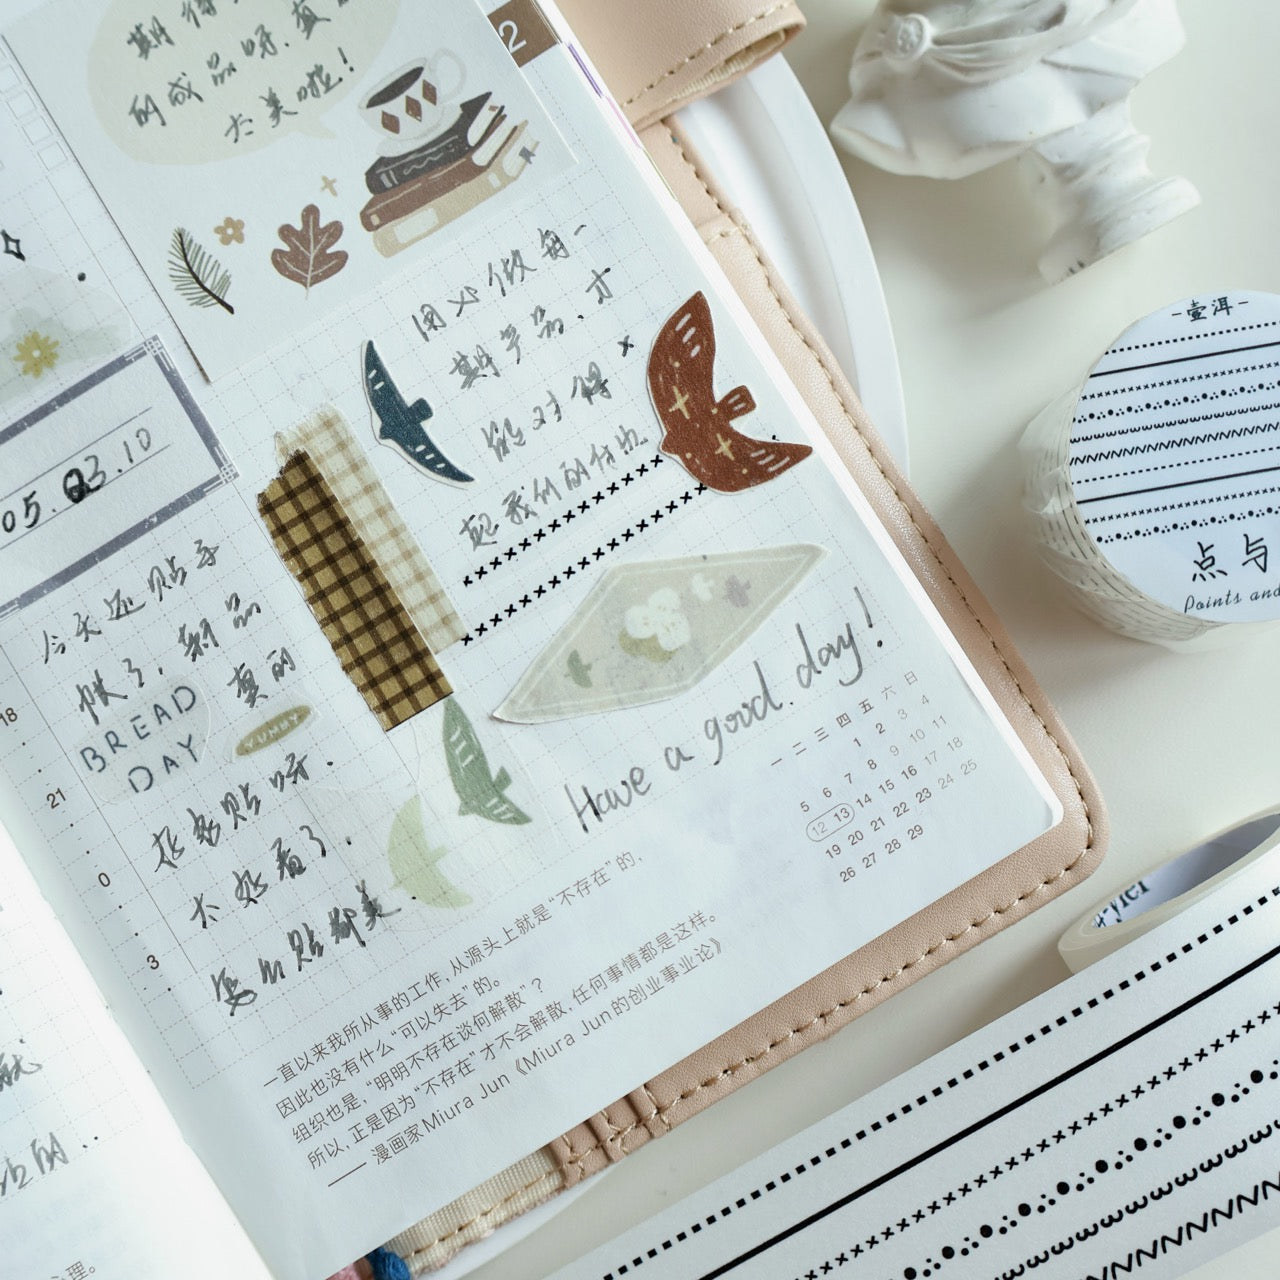 期待
的成品呀.真
太美啦!
2
用心做每一
期产品.才
能对得
起我们的付出
05.03.10
今天还贴手
帐了,新品
真的
BREAD
DAY
YUMMY
拈贴呀.
太好看了.
怎么贴都美.
18
21
0
3
Have a good day!
一 二 三 四 五 六 日
1 2 3 4
5 6 7 8 9 10 11
12 13 14 15 16 17 18
19 20 21 22 23 24 25
26 27 28 29
一直以来我所从事的工作,从源头上就是“不存在”的,
因此也没有什么“可以失去”的。
组织也是,“明明不存在谈何解散”?
所以,正是因为“不存在”才不会解散,任何事情都是这样。
—— 漫画家Miura Jun《Miura Jun的创业事业论》
就
的..
心理。
-壹洱-
点与
Points and